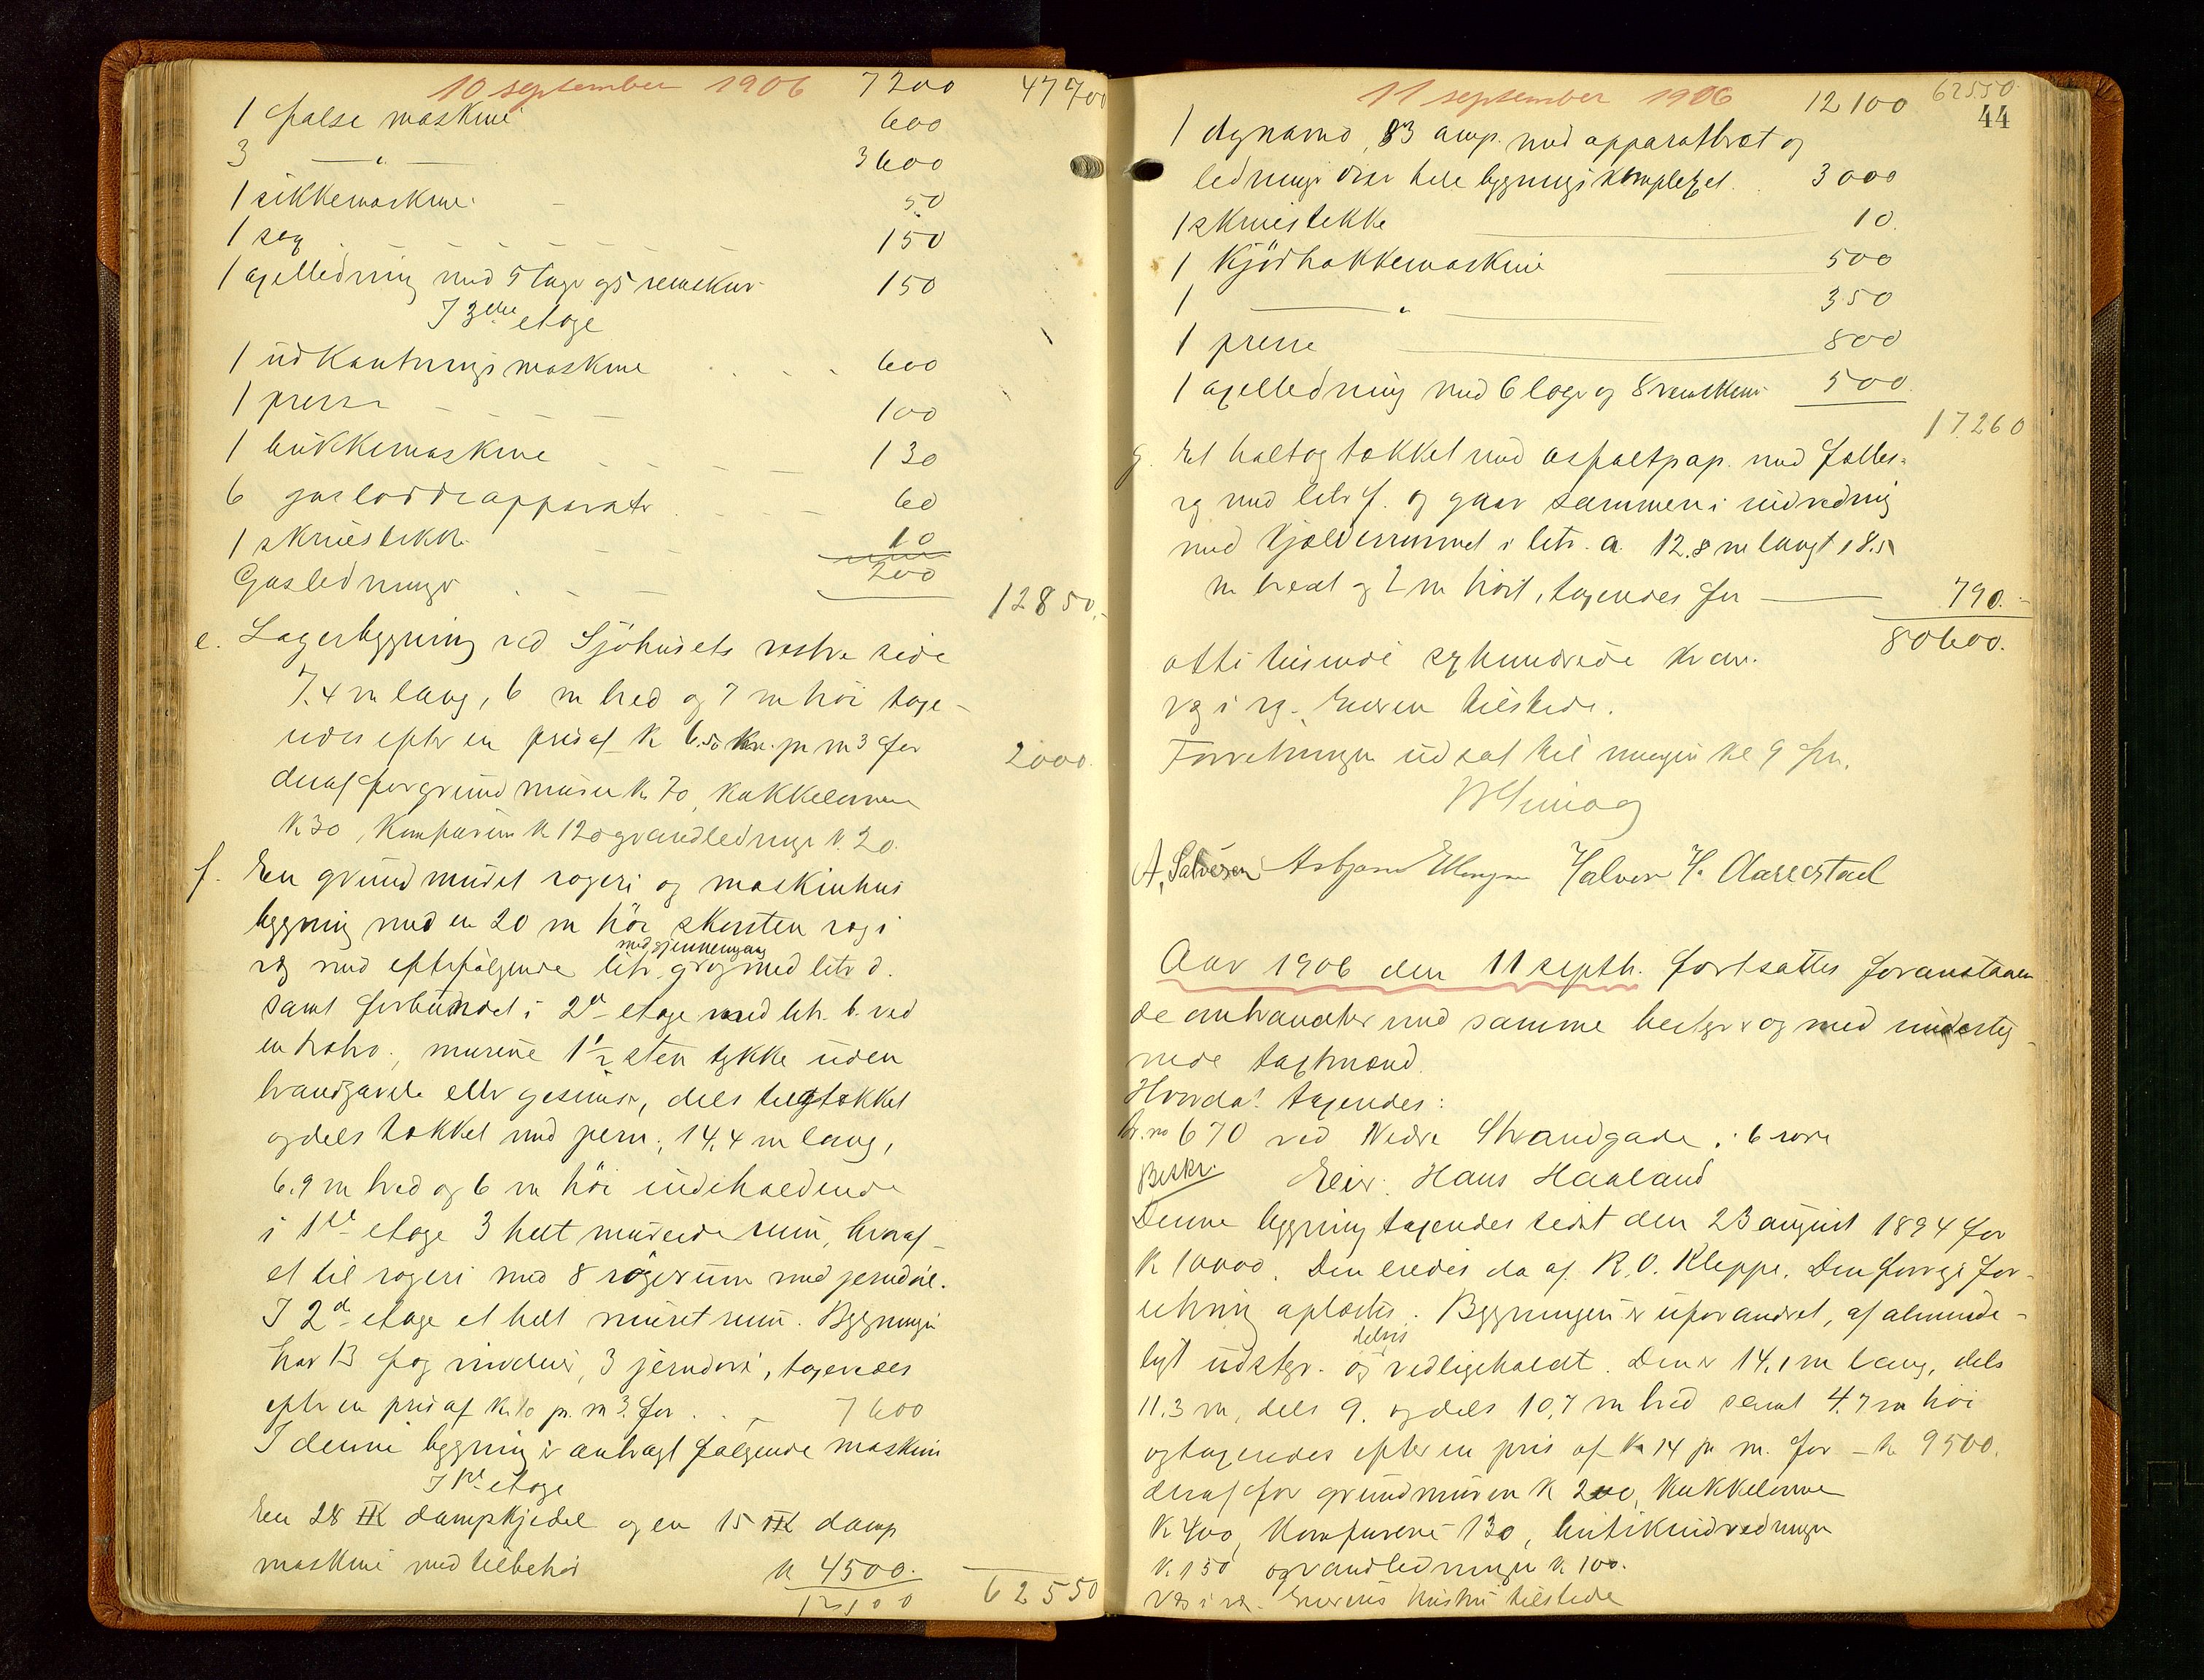 10 september 1906 7200 47700
1 false maskine 600
3 —"— 3600
1 sikkemaskine 50
1 sag 150
1 axelledning med 5 lager og 5 remskiver 150
I 3die etage
1 udkantningsmaskine 600
1 presse 100
1 bukkemaskine 130
6 gasloddeapparater 60
1 skruestikke 10
Gasledninger 200
12850.-
e. Lagerbygning ved Sjöhusets vestre side
7.4 m lang, 6 m bred og 7 m höi taxe-
redes efter en pris af K 6.50 pr m3 for 2000.
deraf for grundmuren K. 70, kakkelovne
K 30, Komfuren K 120 og vandledninger K. 20.
f. En grundmuret røgeri og maskinhus
bygning med en 20 m höi skorsten røgi
rg med efterfølgende litr. g og med litr d.
med gjennemgang
samt forbundet i 2den etage med litr. b. ved
en bro, murene 1 1/2 sten tykke uden
brandgavle eller gesimser, dels tegltækket
og dels tækket med jern; 14,4 m lang,
6.9 m bred og 6 m höi indeholdende
i 1ste etage 3 helt murede rum, hvoraf
et til røgeri med 8 røgerum med jerndöre.
I 2den etage et helt muret rum. Bygningen
har 13 fag vinduer, 3 jerndöre, taxeredes
efter en pris af K. 10 pr. m3. for 7600
I denne bygning er anbragt følgende maskiner
I 1ste etage
En 28 HK dampkjedel og en 15 HK damp
maskine med tilbehör K 4500.
12100 62550
11 september 1906 12100 62550
44
1 dynamo, 83 amp. med apparatbræt og
ledninger over hele bygningskomplexet 3000
1 skruestikke 10.
1 Kjödhakkemaskine 500
1 —"— 350
1 presse 800
1 axelledning med 6 lager og 8 remskiver 500
17260
g. Et halvtag tækket med asfaltpap. med fælles
rg med litr f. og gaar sammen i indredning
med Kjælderrummet i litr. a. 12.8 m langt, 8.5
m bredt og 2 m höit, taxeredes for 790.-
80600.
otti tusinde sexhundrede kroner.
rg i rg. Eieren tilstede.
Forretningen udsat til morgen kl 9 fm.
A. Salvesen Asbjørn Ellingsen Halvor H. Aarrestad
Aar 1906 den 11 septbr. fortsattes foranstaaen
de omhandler med samme bestyrer og med underteg
nede taxtmænd.
Hvorda taxeredes:
Br. no 670 ved Nedre Strandgade i 6 rode
Beskr. Eier: Hans Haaland
Denne bygning taxeredes sidst den 23 august 1894 for
K 10000. Den eiedes da af R. O. Kleppe. Den forrige for-
retning oplæstes. Bygningen er uforandret, af alminde-
ligt udstyr. og vedligeholdt. Den er 14.1 m lang, dels
delvis
11.3 m, dels 9. og dels 10.7 m bred samt 4.7 m höi
og taxeredes efter en pris af K 14 pr m. for - K 9500.
deraf for grundmuren K 200, Kakkelovne
K 400, Komfurene 130, butikindredninger
K. 150 og vandledninger K. 100.
rg i rg. Eierens hustru tilstede